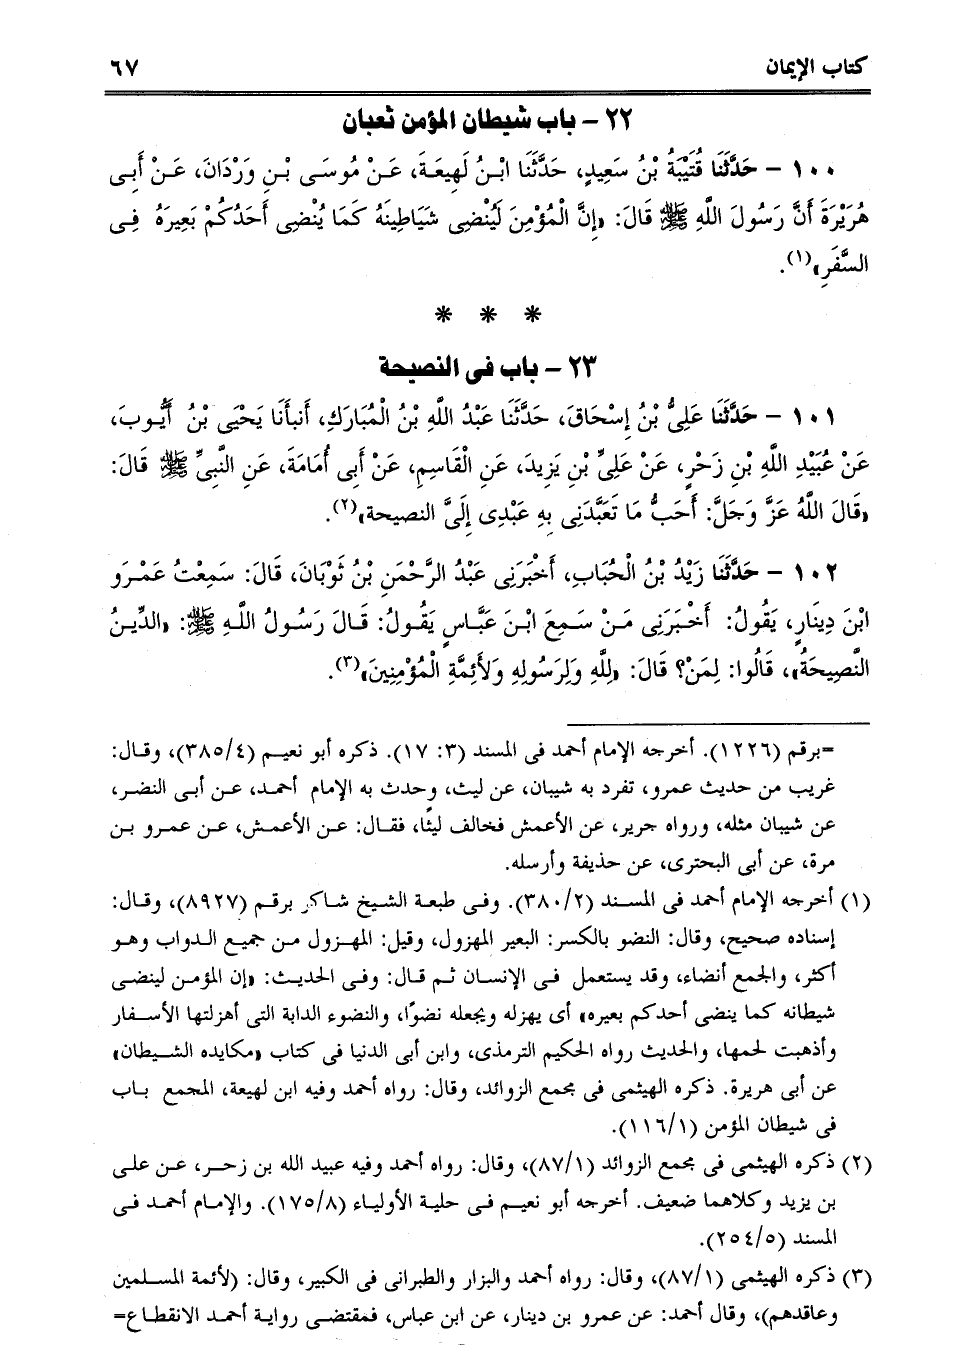 كتاب الإيمان ٦٧
٢٢ - باب شيطان المؤمن ثعبان
١٠٠ - حَدَّثَنَا قُتَيْبَةُ بْنُ سَعِيدٍ، حَدَّثَنَا ابْنُ لَهِيعَةَ، عَنْ مُوسَى بْنِ وَرْدَانَ، عَنْ أَبِى
هُرَيْرَةَ أَنَّ رَسُولَ اللَّهِ ﷺ قَالَ: «إِنَّ الْمُؤْمِنَ لَيُنْضِى شَيَاطِينَهُ كَمَا يُنْضِى أَحَدُكُمْ بَعِيرَهُ فِى
السَّفَرِ»(١).
* * *
٢٣ - باب فى النصيحة
١٠١ - حَدَّثَنَا عَلِىُّ بْنُ إِسْحَاقَ، حَدَّثَنَا عَبْدُ اللَّهِ بْنُ الْمُبَارَكِ، أَنبأَنَا يَحْيَى بْنُ أَيُّوبَ،
عَنْ عُبَيْدِ اللَّهِ بْنِ زَحْرٍ، عَنْ عَلِىِّ بْنِ يَزِيدَ، عَنِ الْقَاسِمِ، عَنْ أَبِى أُمَامَةَ، عَنِ النَّبِىِّ ﷺ قَالَ:
«قَالَ اللَّهُ عَزَّ وَجَلَّ: أَحَبُّ مَا تَعَبَّدَنِى بِهِ عَبْدِى إِلَىَّ النصيحة»(٢).
١٠٢ - حَدَّثَنَا زَيْدُ بْنُ الْحُبَابِ، أَخْبَرَنِى عَبْدُ الرَّحْمَنِ بْنُ ثَوْبَانَ، قَالَ: سَمِعْتُ عَمْرَو
ابْنَ دِينَارٍ، يَقُولُ: أَخْبَرَنِى مَنْ سَمِعَ ابْنَ عَبَّاسٍ يَقُولُ: قَالَ رَسُولُ اللَّهِ ﷺ: «الدِّينُ
النَّصِيحَةُ»، قَالُوا: لِمَنْ؟ قَالَ: «لِلَّهِ وَلِرَسُولِهِ وَلأَئِمَّةِ الْمُؤْمِنِينَ»(٣).
=برقم (١٢٢٦). أخرجه الإمام أحمد فى المسند (٣: ١٧). ذكره أبو نعيم (٣٨٥/٤)، وقال:
غريب من حديث عمرو، تفرد به شيبان، عن ليث، وحدث به الإمام أحمد، عن أبى النضر،
عن شيبان مثله، ورواه جرير، عن الأعمش فخالف ليثًا، فقال: عن الأعمش، عن عمرو بن
مرة، عن أبى البحترى، عن حذيفة وأرسله.
(١) أخرجه الإمام أحمد فى المسند (٣٨٠/٢). وفى طبعة الشيخ شاكر برقم (٨٩٢٧)، وقال:
إسناده صحيح، وقال: النضو بالكسر: البعير المهزول، وقيل: المهزول من جميع الدواب وهو
أكثر، والجمع أنضاء، وقد يستعمل فى الإنسان ثم قال: وفى الحديث: «إن المؤمن لينضى
شيطانه كما ينضى أحدكم بعيره» أى يهزله ويجعله نضوًا، والنضوء الدابة التى أهزلتها الأسفار
وأذهبت لحمها، والحديث رواه الحكيم الترمذى، وابن أبى الدنيا فى كتاب «مكايده الشيطان»
عن أبى هريرة. ذكره الهيثمى فى مجمع الزوائد، وقال: رواه أحمد وفيه ابن لهيعة، المجمع باب
فى شيطان المؤمن (١١٦/١).
(٢) ذكره الهيثمى فى مجمع الزوائد (٨٧/١)، وقال: رواه أحمد وفيه عبيد الله بن زحر، عن على
بن يزيد وكلاهما ضعيف. أخرجه أبو نعيم فى حلية الأولياء (١٧٥/٨). والإمام أحمد فى
المسند (٢٥٤/٥).
(٣) ذكره الهيثمى (٨٧/١)، وقال: رواه أحمد والبزار والطبرانى فى الكبير، وقال: (لأئمة المسلمين
وعاقدهم)، وقال أحمد: عن عمرو بن دينار، عن ابن عباس، فمقتضى رواية أحمد الانقطاع=